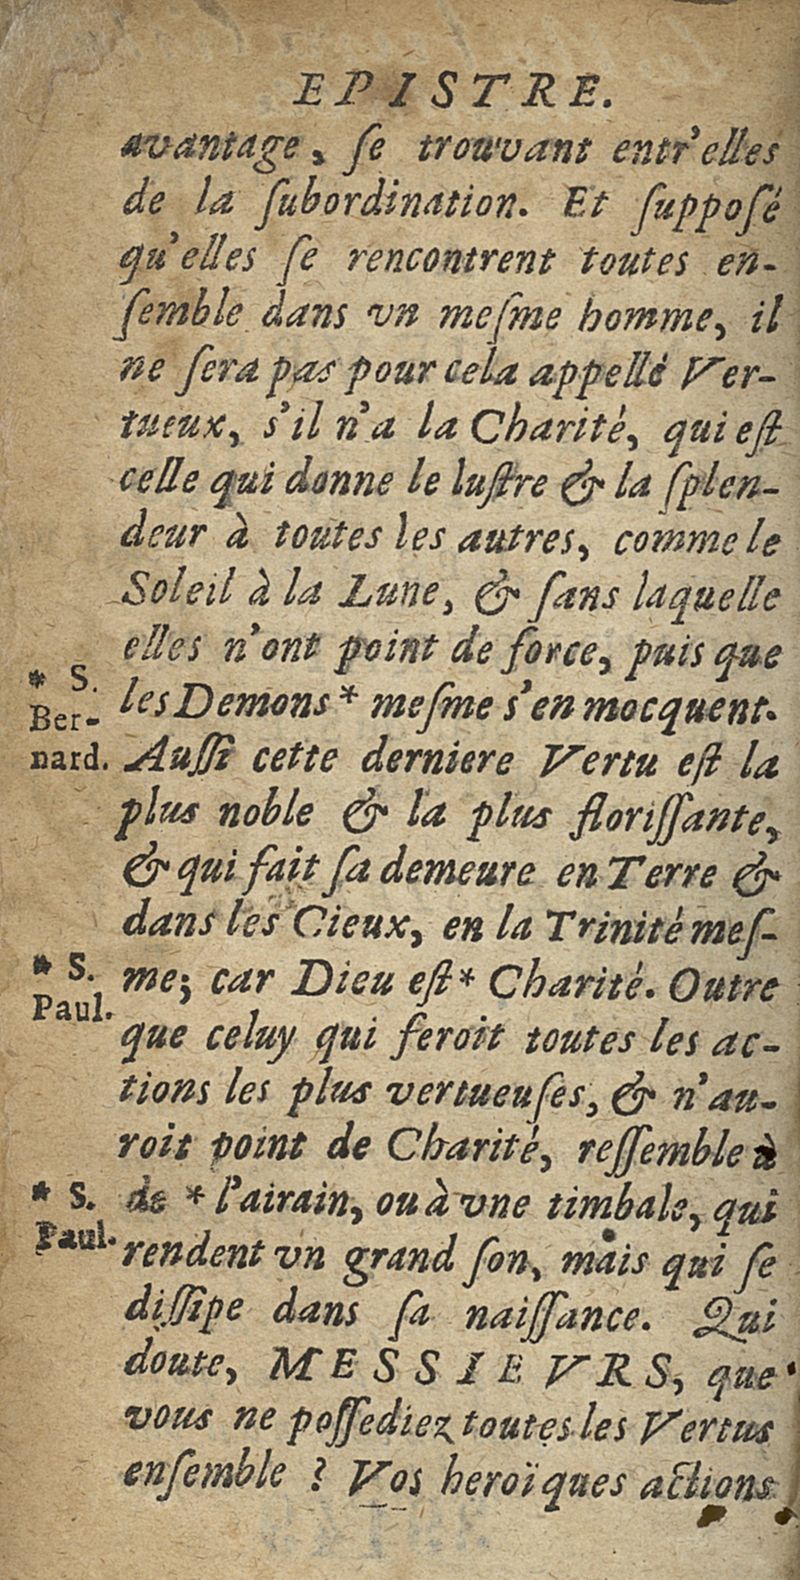 EPISTRE.
avantage, ſe trouvant entr'elles
de la ſubordination. Et ſuppoſé
qu'elles ſe rencontrent toutes en-
ſemble dans vn meſme homme, il
ne ſera pas pour cela appellé Ver-
tueux, s'il n'a la Charité, qui eſt
celle qui donne le luſtre & la ſplen-
deur à toutes les autres, comme le
Soleil à la Lune, & ſans laquelle
elles n'ont point de force, puis que
* S.
Ber-
nard.
les Demons * meſme s'en mocquent.
Auſſi cette derniere Vertu eſt la
plus noble & la plus floriſſante,
& qui fait ſa demeure en Terre &
dans les Cieux, en la Trinité meſ-
* S.
Paul.
me; car Dieu eſt * Charité. Outre
que celuy qui feroit toutes les ac-
tions les plus vertueuſes, & n'au-
roit point de Charité, reſſemble à
* S.
Paul.
de * l'airain, ou à vne timbale, qui
rendent vn grand ſon, mais qui ſe
diſſipe dans ſa naiſſance. Qui
doute, MESSIEVRS, que
vous ne poſſediez toutes les Vertus
enſemble ? Vos heroïques actions